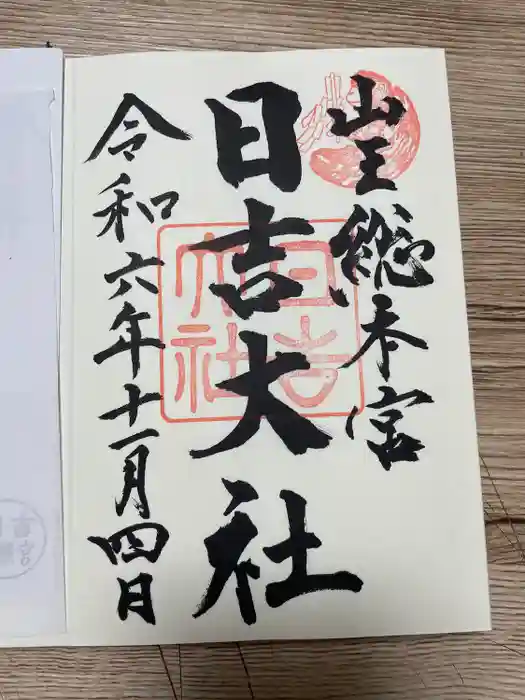 山王総本宮
日吉大社
令和六年十一月四日
日吉大社